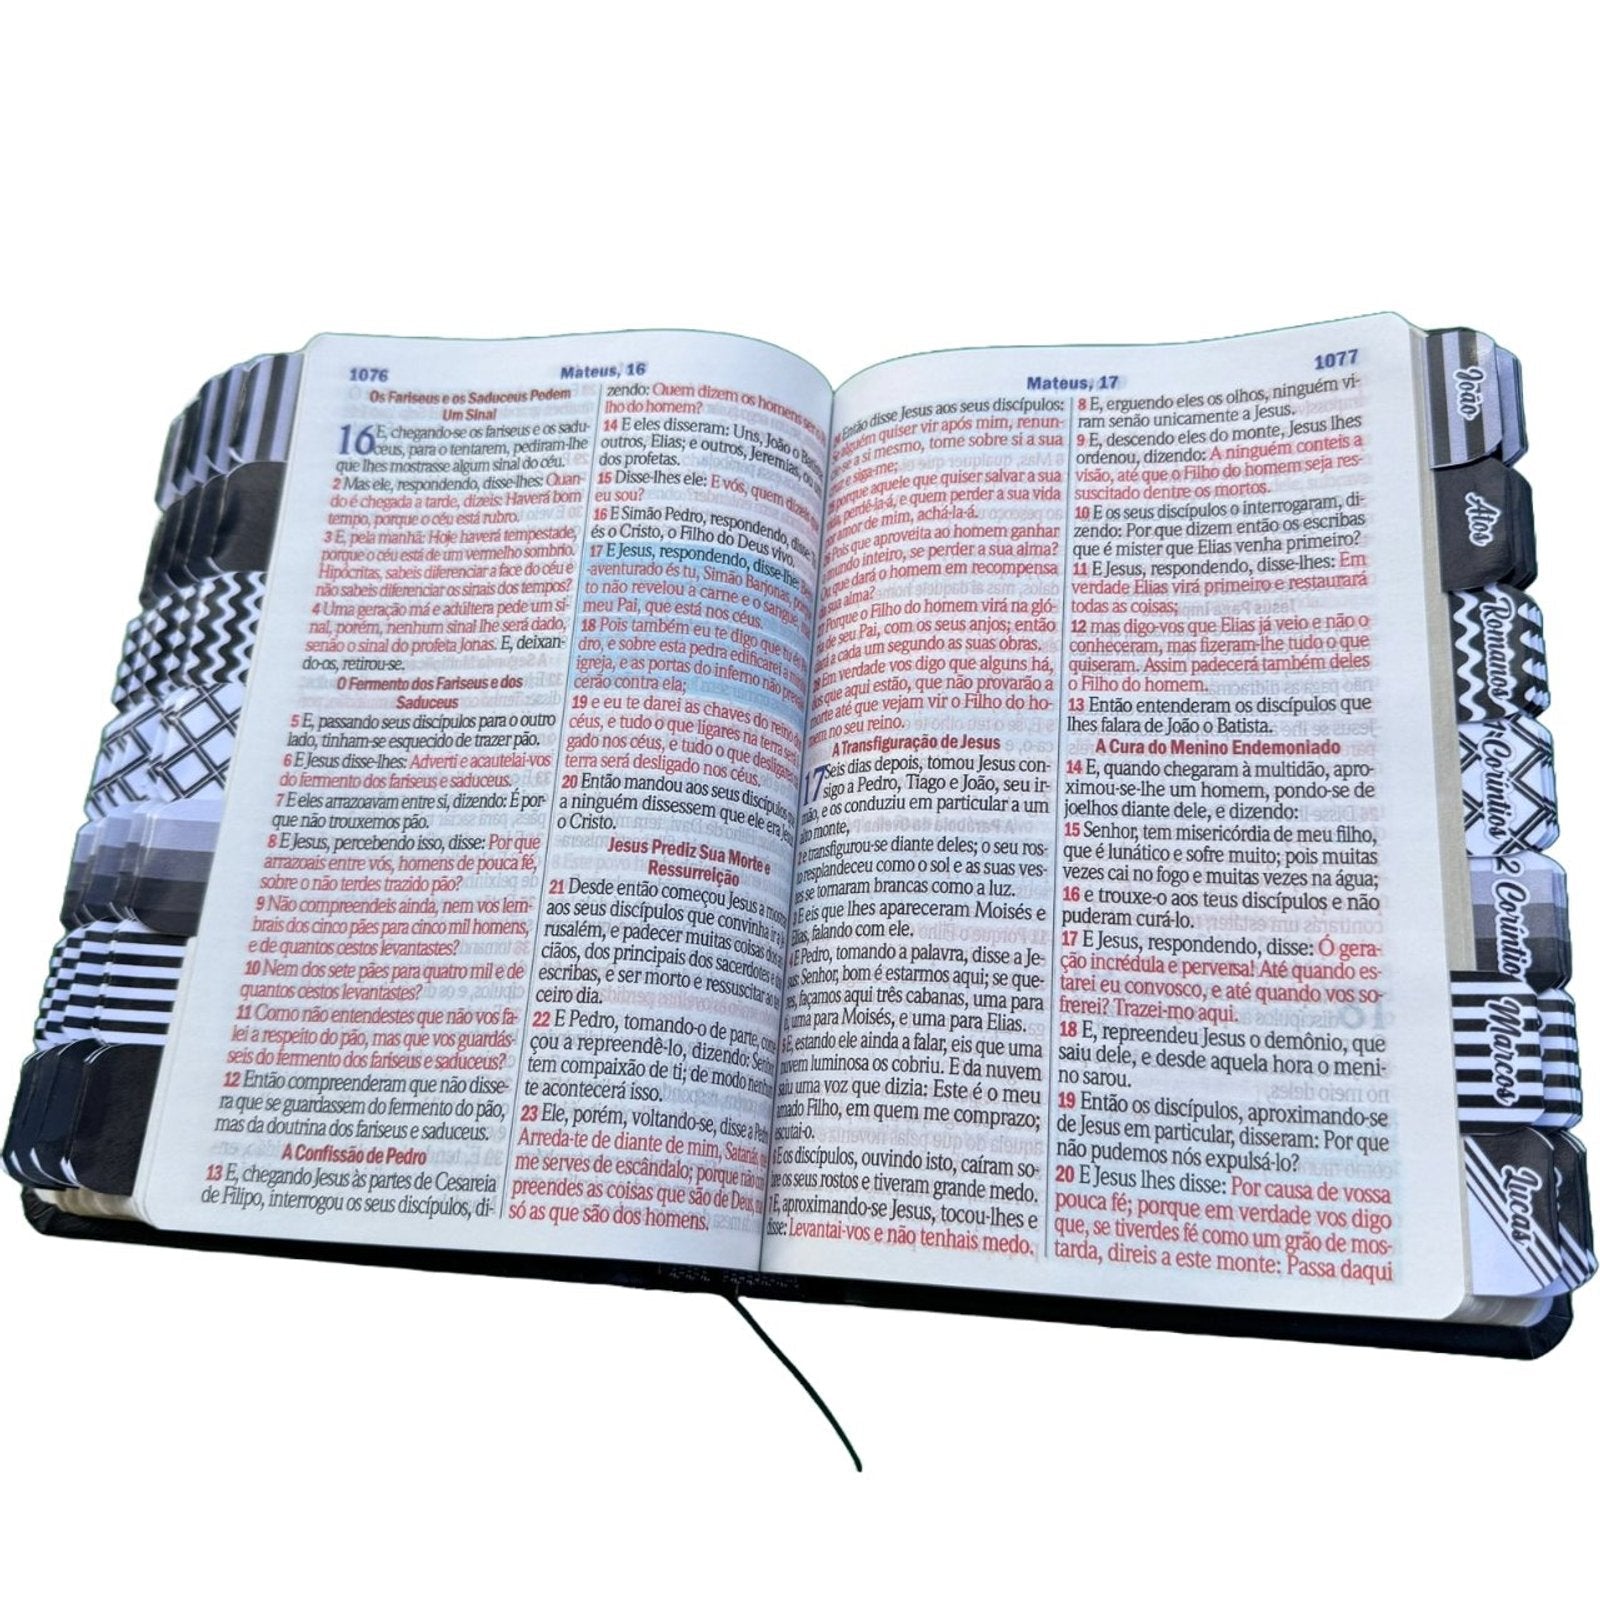 1076
Mateus, 16
Os Fariseus e os Saduceus Pedem
Um Sinal
16 E, chegando-se os fariseus e os sadu-
ceus, para o tentarem, pediram-lhe
que lhes mostrasse algum sinal do céu.
2 Mas ele, respondendo, disse-lhes: Quan-
do é chegada a tarde, dizeis: Haverá bom
tempo, porque o céu está rubro.
3 E, pela manhã: Hoje haverá tempestade,
porque o céu está de um vermelho sombrio.
Hipócritas, sabeis diferenciar a face do céu e
não sabeis diferenciar os sinais dos tempos?
4 Uma geração má e adúltera pede um si-
nal, porém, nenhum sinal lhe será dado,
senão o sinal do profeta Jonas. E, deixan-
do-os, retirou-se.
O Fermento dos Fariseus e dos
Saduceus
5 E, passando seus discípulos para o outro
lado, tinham-se esquecido de trazer pão.
6 E Jesus disse-lhes: Adverti e acautelai-vos
do fermento dos fariseus e saduceus.
7 E eles arrazoavam entre si, dizendo: É por-
que não trouxemos pão.
8 E Jesus, percebendo isso, disse: Por que
arrazoais entre vós, homens de pouca fé,
sobre o não terdes trazido pão?
9 Não compreendeis ainda, nem vos lem-
brais dos cinco pães para cinco mil homens,
e de quantos cestos levantastes?
10 Nem dos sete pães para quatro mil e de
quantos cestos levantastes?
11 Como não entendestes que não vos fa-
lei a respeito do pão, mas que vos guardás-
seis do fermento dos fariseus e saduceus?
12 Então compreenderam que não disse-
ra que se guardassem do fermento do pão,
mas da doutrina dos fariseus e saduceus.
A Confissão de Pedro
13 E, chegando Jesus às partes de Cesareia
de Filipo, interrogou os seus discípulos, di-
zendo: Quem dizem os homens ser o
lho do homem?
14 E eles disseram: Uns, João o Batista
outros, Elias; e outros, Jeremias, ou um
dos profetas.
15 Disse-lhes ele: E vós, quem dizeis que
eu sou?
16 E Simão Pedro, respondendo, disse
és o Cristo, o Filho do Deus vivo.
17 E Jesus, respondendo, disse-lhe:
-aventurado és tu, Simão Barjonas,
to não revelou a carne e o sangue,
meu Pai, que está nos céus.
18 Pois também eu te digo que tu és
dro, e sobre esta pedra edificarei a
igreja, e as portas do inferno não
cerão contra ela;
19 e eu te darei as chaves do reino
céus, e tudo o que ligares na terra será
gado nos céus, e tudo o que desligares
terra será desligado nos céus.
20 Então mandou aos seus discípulos
a ninguém dissessem que ele era
o Cristo.
Jesus Prediz Sua Morte e
Ressurreição
21 Desde então começou Jesus a
aos seus discípulos que convinha ir a
rusalém, e padecer muitas coisas dos
ciãos, dos principais dos sacerdotes e
escribas, e ser morto e ressuscitar ao
ceiro dia.
22 E Pedro, tomando-o de parte,
çou a repreendê-lo, dizendo:
tem compaixão de ti; de modo
te acontecerá isso.
23 Ele, porém, voltando-se, disse a
Arreda-te de diante de mim, Satanás,
me serves de escândalo; porque não
preendes as coisas que são de Deus,
só as que são dos homens.
Mateus, 17
1077
Então disse Jesus aos seus discípulos:
alguém quiser vir após mim, renun-
-se a si mesmo, tome sobre si a sua
e siga-me;
porque aquele que quiser salvar a sua
perdê-la-á, e quem perder a sua vida
por amor de mim, achá-la-á.
Pois que aproveita ao homem ganhar
mundo inteiro, se perder a sua alma?
Ou que dará o homem em recompensa
sua alma?
Porque o Filho do homem virá na gló-
de seu Pai, com os seus anjos; então
a cada um segundo as suas obras.
Em verdade vos digo que alguns há,
que aqui estão, que não provarão a
morte até que vejam vir o Filho do ho-
mem no seu reino.
A Transfiguração de Jesus
17 Seis dias depois, tomou Jesus con-
sigo a Pedro, Tiago e João, seu ir-
mão, e os conduziu em particular a um
alto monte,
e transfigurou-se diante deles; o seu ros-
resplandeceu como o sol e as suas ves-
se tornaram brancas como a luz.
E eis que lhes apareceram Moisés e
Elias, falando com ele.
E Pedro, tomando a palavra, disse a Je-
Senhor, bom é estarmos aqui; se que-
façamos aqui três cabanas, uma para
uma para Moisés, e uma para Elias.
E, estando ele ainda a falar, eis que uma
nuvem luminosa os cobriu. E da nuvem
saiu uma voz que dizia: Este é o meu
amado Filho, em quem me comprazo;
escutai-o.
E os discípulos, ouvindo isto, caíram so-
os seus rostos e tiveram grande medo.
E, aproximando-se Jesus, tocou-lhes e
disse: Levantai-vos e não tenhais medo.
8 E, erguendo eles os olhos, ninguém vi-
ram senão unicamente a Jesus.
9 E, descendo eles do monte, Jesus lhes
ordenou, dizendo: A ninguém conteis a
visão, até que o Filho do homem seja res-
suscitado dentre os mortos.
10 E os seus discípulos o interrogaram, di-
zendo: Por que dizem então os escribas
que é mister que Elias venha primeiro?
11 E Jesus, respondendo, disse-lhes: Em
verdade Elias virá primeiro e restaurará
todas as coisas;
12 mas digo-vos que Elias já veio e não o
conheceram, mas fizeram-lhe tudo o que
quiseram. Assim padecerá também deles
o Filho do homem.
13 Então entenderam os discípulos que
lhes falara de João o Batista.
A Cura do Menino Endemoniado
14 E, quando chegaram à multidão, apro-
ximou-se-lhe um homem, pondo-se de
joelhos diante dele, e dizendo:
15 Senhor, tem misericórdia de meu filho,
que é lunático e sofre muito; pois muitas
vezes cai no fogo e muitas vezes na água;
16 e trouxe-o aos teus discípulos e não
puderam curá-lo.
17 E Jesus, respondendo, disse: Ó gera-
ção incrédula e perversa! Até quando es-
tarei eu convosco, e até quando vos so-
frerei? Trazei-mo aqui.
18 E, repreendeu Jesus o demônio, que
saiu dele, e desde aquela hora o meni-
no sarou.
19 Então os discípulos, aproximando-se
de Jesus em particular, disseram: Por que
não pudemos nós expulsá-lo?
20 E Jesus lhes disse: Por causa de vossa
pouca fé; porque em verdade vos digo
que, se tiverdes fé como um grão de mos-
tarda, direis a este monte: Passa daqui
João
Atos
Romanos
Coríntios
2 Coríntio
Marcos
Lucas